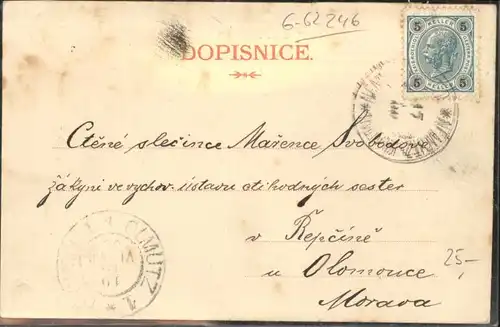 6-62246
DOPISNICE.
5 HELLER 5
5 HELLER 5
Ctěné slečince Mařence Svobodove
žákyni ve vychov. ústavu ctihodných sester
v Řepčíně
u Olomouce
Morava
25,-
OLMÜTZ 1